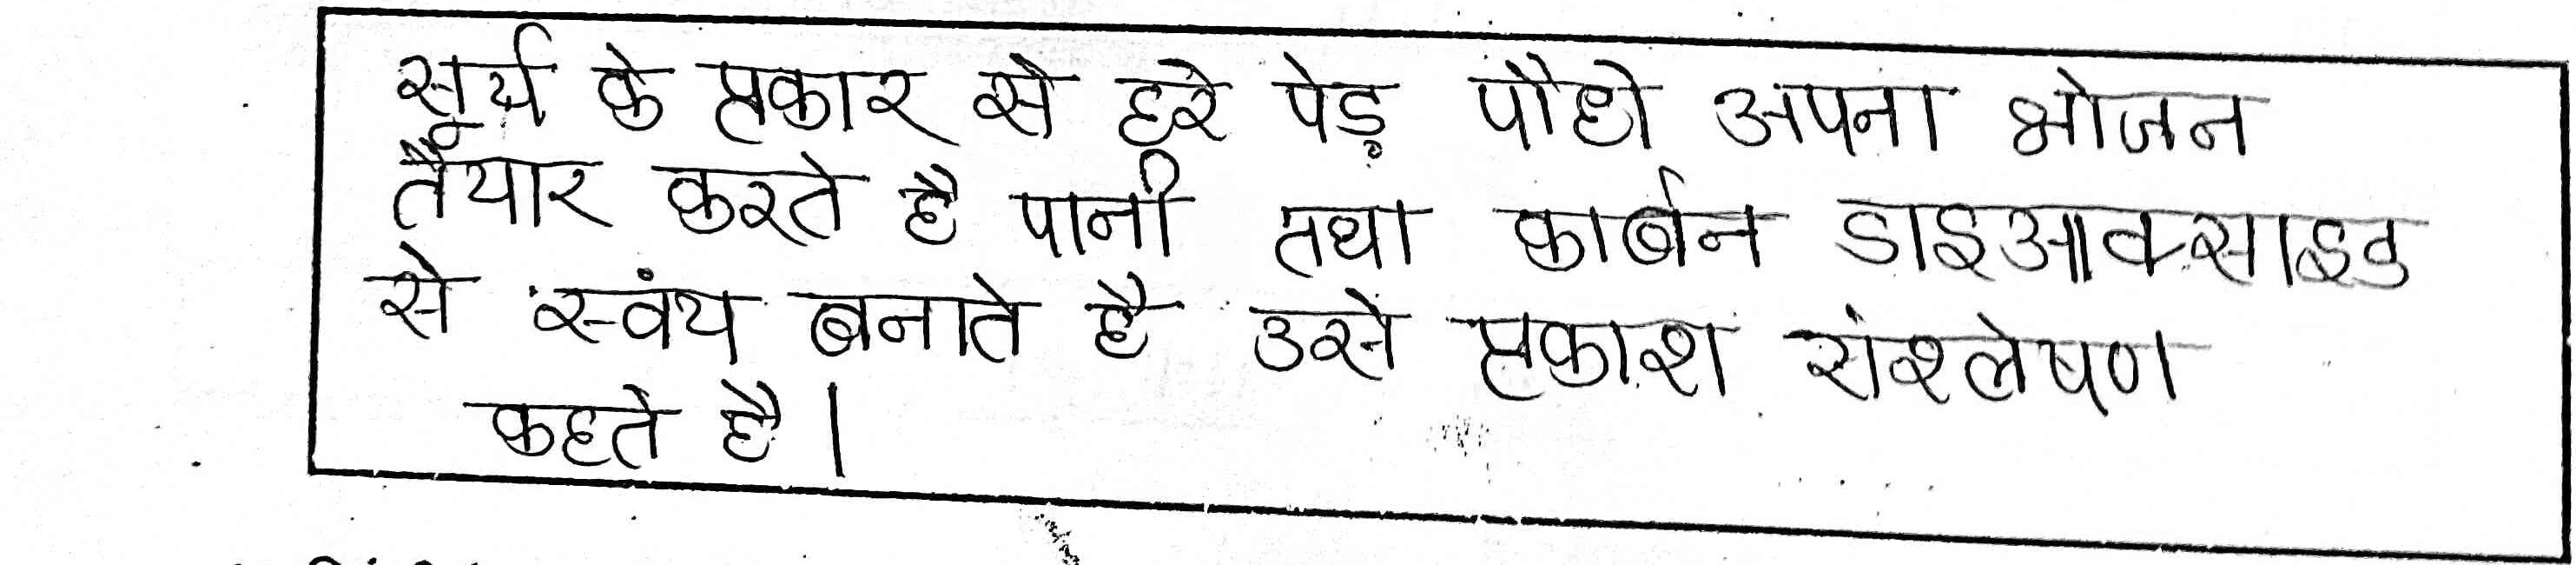 सूर्य के प्रकार से हरे पेड़ पौधे अपना भोजन
तैयार करते है पानी तथा कार्बन डाइआक्साइड
से स्वंय बनाते है उसे प्रकाश संश्लेषण
कहते है।